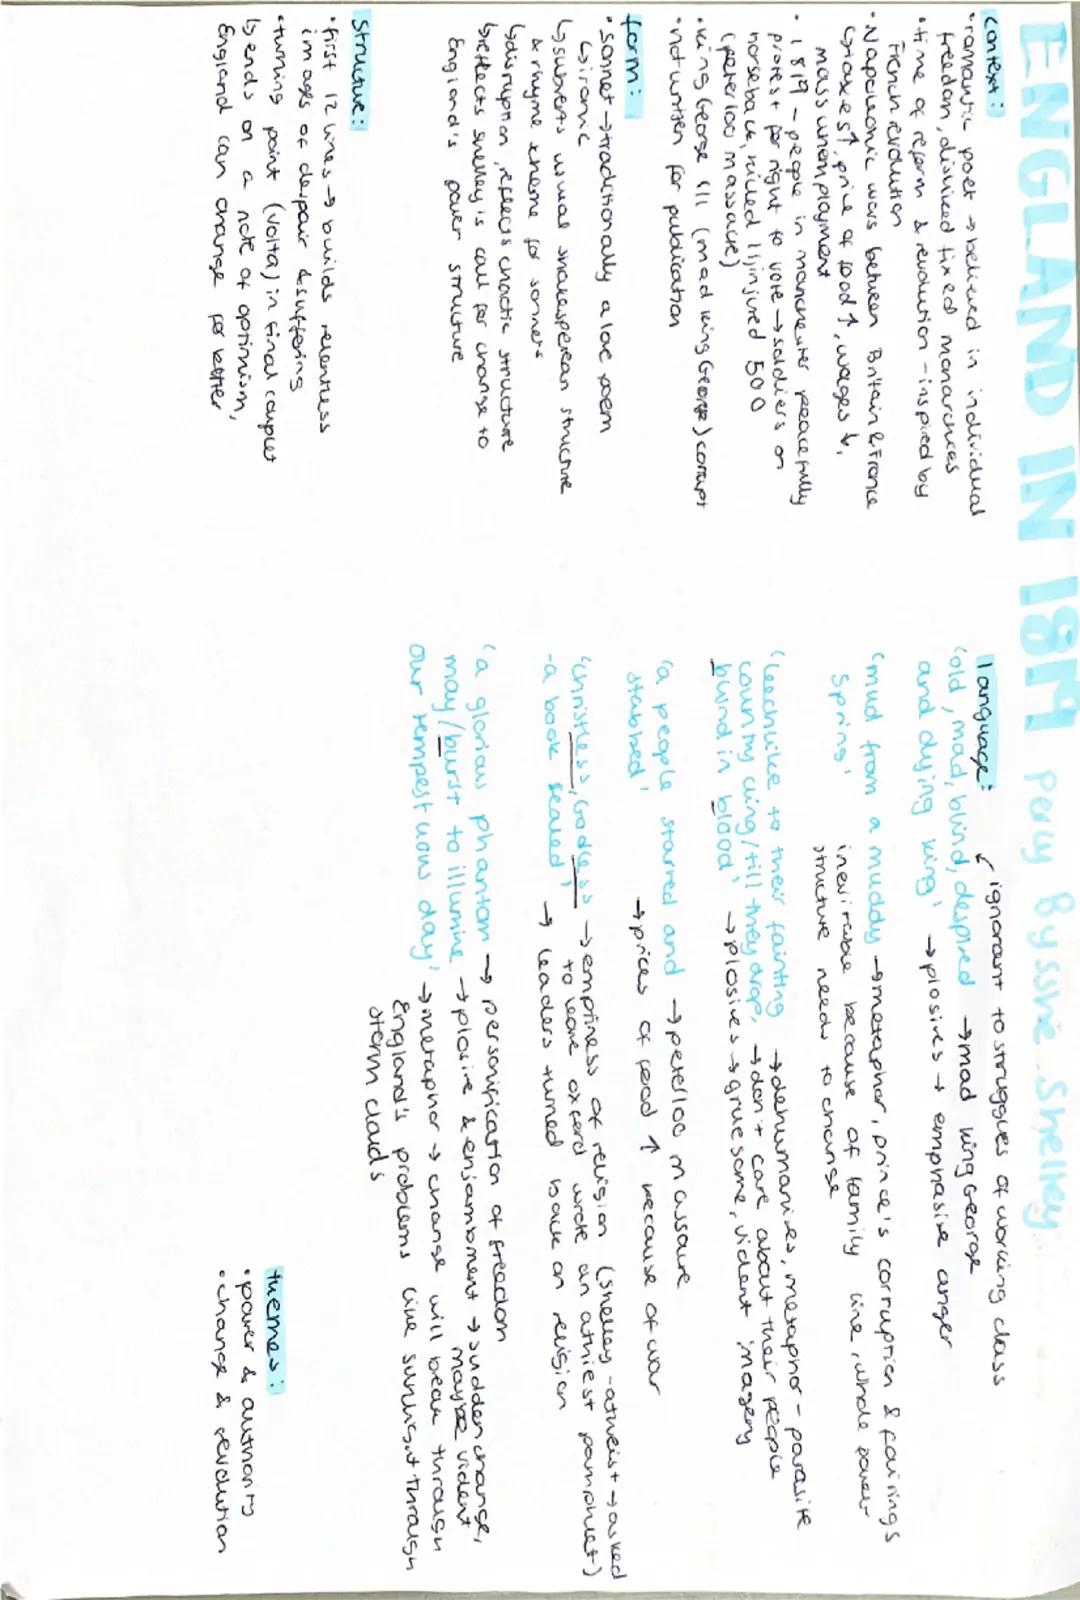 ENGLAND IN 1819 Percy Bysshe Shelley
Context:
• romantic poet → believed in individual
freedom, disliked fixed monarchies
• time of reform & revolution - inspired by
French revolution
• Napoleonic wars between Britain & France
↳ taxes ↑, price of food ↑, wages ↓,
mass unemployment
• 1819 - people in manchester peacefully
protest for right to vote → soldiers on
horseback, killed 11, injured 500
(peterloo massacre)
• King George III (mad king George) corrupt
• not written for publication
form:
• sonnet → traditionally a love poem
↳ ironic
↳ subverts usual shakesperean structure
& rhyme scheme for sonnets
↳ disruption, reflects chaotic structure
↳ reflects shelley's call for change to
England's power structure
Structure:
• first 12 lines → builds relentless
images of despair & suffering
• turning point (volta) in final couplet
↳ ends on a note of optimism,
England can change for better
language:
ignorant to struggles of working class
'old, mad, blind, despised → mad king George
and dying king' → plosives → emphasise anger
'mud from a muddy → metaphor, prince's corruption & failings
spring' inevitable because of family line, whole power
structure needs to change
'leechlike to their fainting → dehumanises, metaphor - parasite
country cling/till they drop, → don't care about their people
blind in blood' → plosives → gruesome, violent imagery
'a people starved and → peterloo massacre
stabbed' → prices of food ↑ because of war
'christless, Godless → emptiness of religion (shelley - atheist → asked
to leave oxford wrote an athiest pamphlet)
- a book sealed' → leaders turned back on religion
'a glorious phantom → personification of freedom
may/burst to illumine → plosive & enjambment → sudden change,
maybe violent
our tempestuous day' → metaphor → change will break through
England's problems like sunlight through
storm clouds
themes:
• power & authority
• change & revolution